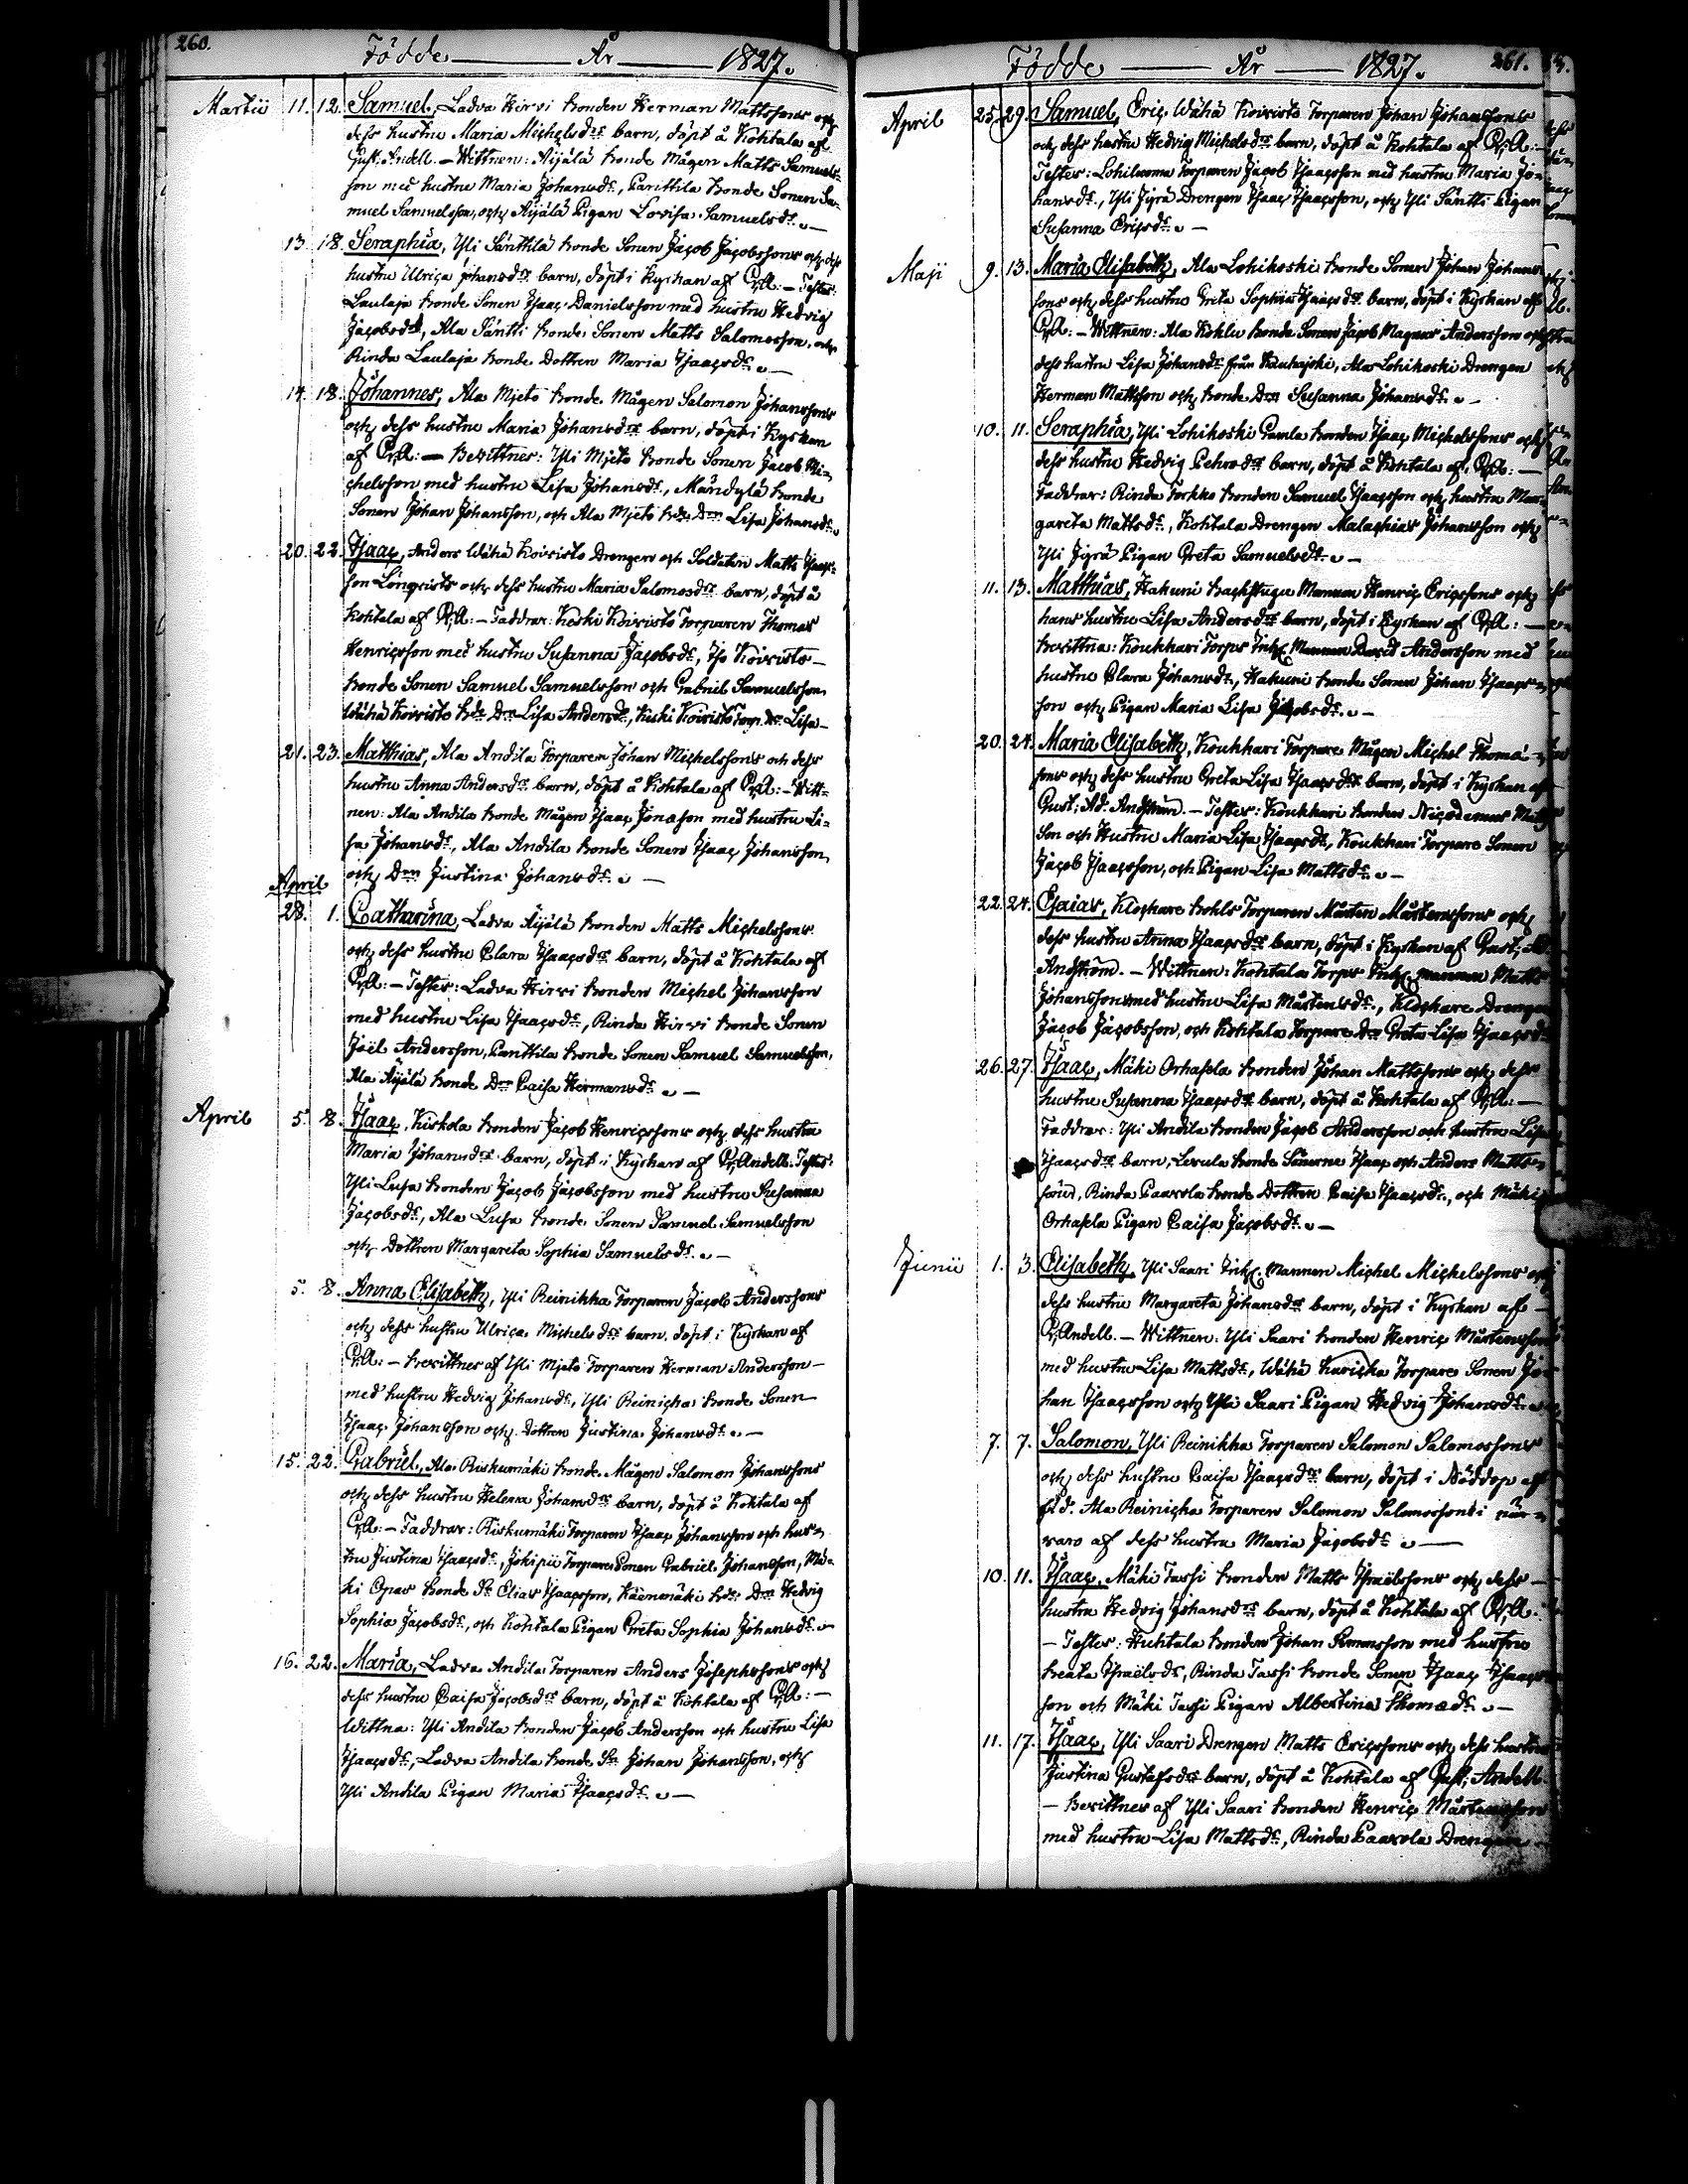 260.
Födde År 1827.
Martii 11. 12. Samuel, Ladva Hirvi bonden Herman Mattssons och
dess hustru Maria Michelsdrs barn, döpt å Kohtala af
Gust. Andell. – Wittnen: Äijälä bonde Mågen Matts Samuels-
son med hustru Maria Johansdr, Panttila bonde Sonen Sa-
muel Samuelsson, och Äijälä Pigan Lovisa Samuelsdr. –
13. 18. Seraphia, Yli Sänttilä bonde Sonen Jacob Jacobssons och dess
hustru Ulrica Johansdrs barn, döpt i Kyrkan af G:A: – Testes:
Laulaja bonde Sonen Isaac Danielsson med hustru Hedvig
Jacobsdr, Ala Säntti bonde Sonen Matts Salomosson, och
Rinda Laulaja bonde Dottren Maria Isaacsdr. –
14. 18. Johannes, Ala Mjeto bonde Mågen Salomon Johanssons
och dess hustru Maria Johansdrs barn, döpt i Kyrkan
af G:A: – Bevittnes: Yli Mjeto bonde Sonen Jacob Mi-
chelsson med hustru Lisa Johansdr, Mändylä bonde
Sonen Johan Johansson, och Ala Mjeto bde Drn Lisa Johansdr.
20. 22. Isaac, Anders Wähä Koivisto Drengen och Soldaten Matts Isacs-
son Lönqvists och dess hustru Maria Salomosdrs barn, döpt å
Kohtala af G:A: – Faddrar: Keski Koivisto Torparen Thomas
Henricsson med hustru Susanna Jacobsdr, Iso Koivisto –
bonde Sonen Samuel Samuelsson och Gabriel Samuelsson,
Wähä Koivisto bde Drn Lisa Andersdr, Keski Koivisto Torp. Dr Lisa –
21. 23. Matthias, Ala Andila Torparen Johan Michelssons och dess
hustru Anna Andersdrs barn, döpt å Kohtala af G:A: – Witt-
nen: Ala Andila bonde Mågen Isaac Jonasson med hustru Li-
sa Johansdr, Ala Andila bonde Sonen Isaac Johansson,
och Drn Justina Johansdr. –
April
28. 1. Catharina, Ladva Äijälä bonden Matts Michelssons
och dess hustru Clara Isaacsdrs barn, döpt å Kohtala af
G:A: – Testes: Ladva Hirvi bonden Michel Johansson
med hustru Lisa Isaacsdr, Rinda Hirvi bonde Sonen
Joël Andersson, Panttila bonde Sonen Samuel Samuelsson,
Ala Äijälä bonde Drn Caisa Hermansdr. –
April 5. 8. Isaac, Kiskola bonden Jacob Henricssons och dess hustru
Maria Johansdrs barn, döpt i Kyrkan af G:Andell. Testes:
Yli Lusa bonden Jacob Jacobsson med hustru Susanna
Jacobsdr, Ala Lusa bonde Sonen Samuel Samuelsson
och Dottren Margareta Sophia Samuelsdr. –
5. 8. Anna Elisabeth, Yli Reinikka Torparen Jacob Anderssons
och dess hustru Ulrica Michelsdrs barn, döpt i Kyrkan af
G:A: – bevittnes af Yli Mjeto Torparen Herman Andersson –
med hustru Hedvig Johansdr, Yli Reinicka bonde Sonen
Isaac Johansson och Dottren Justina Johansdr. –
15. 22. Gabriel, Ala Riskumäki bonde Mågen Salomon Johanssons
och dess hustru Helena Johansdrs barn, döpt å Kohtala af
G:A: – Faddrar: Riskumäki Torparen Isaac Johansson och hus-
tru Justina Isaacsdr, Jokipii Torpare Sonen Gabriel Johansson, Mä-
ki Opas bonde Sn Elias Isaacsson, Käenmäki bde Drn Hedvig
Sophia Jacobsdr, och Kohtala Pigan Greta Sophia Johansdr. –
16. 22. Maria, Ladva Andila Torparen Anders Josephssons och
dess hustru Caisa Jacobsdrs barn, döpt å Kohtala af G:A: –
Wittna: Yli Andila bonden Jacob Andersson och hustru Lisa
Isaacsdr, Ladva Andila bonde Sn Johan Johansson, och
Yli Andila Pigan Maria Isaacsdr. –
261.
Födde År 1827.
April 25. 29. Samuel, Eric Wähä Koivisto Torparen Johan Johanssons
och dess hustru Hedvig Michelsdrs barn, döpt å Kohtala af G:A: –
Testes: Lohiluoma Torparen Jacob Isaacsson med hustru Maria Jo-
hansdr, Yli Jyrä Drengen Isaac Isaacsson, och Yli Säntti Pigan
Susanna Ericsdr. –
Maji 9. 13. Maria Elisabeth, Ala Lohikoski bonde Sonen Johan Johans-
sons och dess hustru Greta Sophia Isaacsdrs barn, döpt i Kyrkan af
G:A: – Wittnen: Ala Koklu bonde Sonen Jacob Magnus Andersson och
dess hustru Lisa Johansdr från Kauhajoki, Ala Lohikoski Drengen
Herman Mattsson och bonde Drn Susanna Johansdr. –
10. 11. Seraphia, Yli Lohikoski Gamla bonden Isaac Michelssons och
dess hustru Hedvig Pehrsdrs barn, döpt å Kohtala af G:A: –
Faddrar: Rinda Torkko bonden Samuel Isaacsson och hustru Mar-
gareta Mattsdr, Kohtala Drengen Malachias Johansson och
Yli Jyrä Pigan Greta Samuelsdr. –
11. 13. Matthias, Hakuni Backstugu Mannen Henric Ericssons och
hans hustru Lisa Andersdrs barn, döpt i Kyrkan af G:A: –
bevittna: Koukkari Torps Inh. Mannen David Andersson med
hustru Clara Johansdr, Hakuni bonde Sonen Johan Isaacs-
son och Pigan Maria Lisa Jacobsdr. –
20. 24. Maria Elisabeth, Koukkari Torpare Mågen Michel Thomæ-
sons och dess hustru Greta Lisa Isaacsdrs barn, döpt i Kyrkan af
Gust: Ad: Andström. – Testes: Koukkari bonden Nicodemus Matts-
son och Hustru Maria Lisa Isaacsdr, Koukkari Torpare Sonen
Jacob Isaacsson, och Pigan Lisa Mattsdr. –
22. 24. Esaias, Klockare bohls Torparen Mårten Mårtenssons och
dess hustru Anna Isaacsdrs barn, döpt i Kyrkan af Gust: Ad:
Andström. – Wittnen: Kohtala Torps Inh. mannen Matts
Johansson med hustru Lisa Mårtensdr, Klockare Drengen
Jacob Jacobsson, och Kohtala Torpare Drn Greta Lisa Isaacsdr.
26. 27. Isaac, Mäki Orhasla bonden Johan Mattssons och dess
hustru Susanna Isaacsdrs barn, döpt å Kohtala af G:A: –
Faddrar: Yli Andila bonden Jacob Andersson och hustru Lisa
Isaacsdrs barn, Levula bonde Sönerne Isaac och Anders Matts-
söner, Rinda Paavola bonde Dottren Caisa Isaacsdr, och Mäki
Orhasla Pigan Caisa Jacobsdr. –
Junii 1. 3. Elisabeth, Yli Saari Inh. Mannen Michel Michelssons och
dess hustru Margareta Johansdrs barn, döpt i Kyrkan af –
G:Andell. – Wittnen: Yli Saari bonden Henric Mårtensson
med hustru Lisa Mattsdr, Wähä Karicka Torpare Sonen Jo-
han Isaacsson och Yli Saari Pigan Hedvig Johansdr. –
7. 7. Salomon, Yli Reinikka Torparen Salomon Salomossons
och dess hustru Caisa Isaacsdrs barn, döpt i Nöddop af
Ala Reinicka Torparen Salomon Salomosson i när-
varo af dess hustru Maria Jacobsdr. –
10. 11. Isaac, Mäki Tassi bonden Matts Israelssons och dess –
hustru Hedvig Johansdrs barn, döpt å Kohtala af G:A:
– Testes: Huhtala bonden Johan Simonsson med hustru
Beata Israelsdr, Rinda Tassi bonde Sonen Isaac Isaacs-
son och Mäki Tassi Pigan Albertina Thomædr. –
11. 17. Isaac, Yli Saari Drengen Matts Ericssons och dess hustru
Justina Gustafsdrs barn, döpt å Kohtala af Gust: Andell.
– bevittnes af Yli Saari bonden Henric Mårtensson
med hustru Lisa Mattsdr, Rinda Paavola Drengen